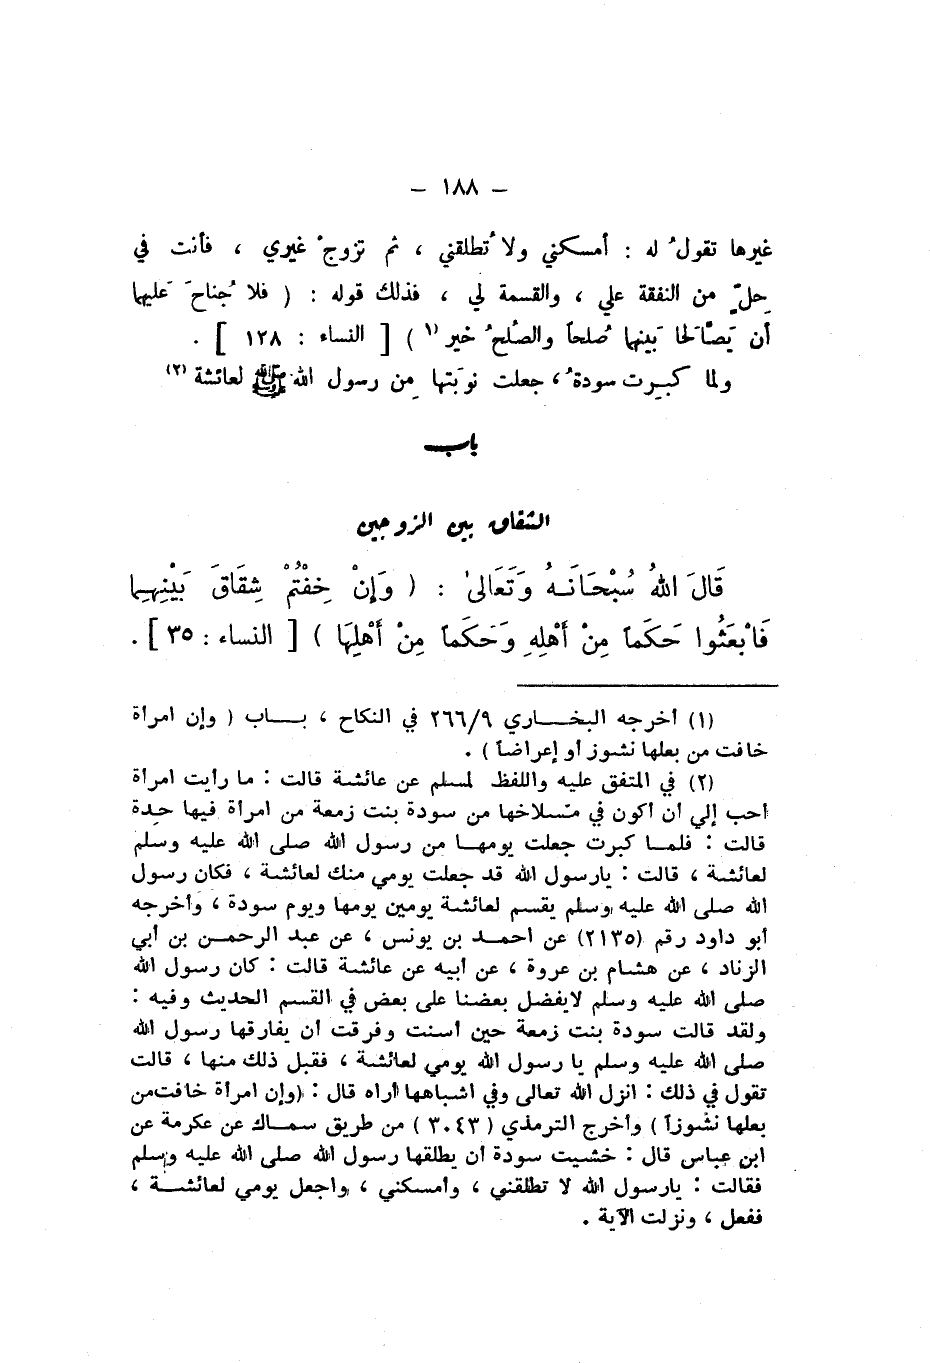 — ١٨٨ —
غيرها تقولُ له : أمسكني ولا تُطلقني ، ثم تزوجْ غيري ، فأنت في
حِلٍّ من النفقة علي ، والقسمة لي ، فذلك قوله : ( فلا جُناحَ عَليهما
أن يَصَّالَحا بَينهما صُلحاً والصُلحُ خير (١) ) [ النساء : ١٢٨ ] .
ولما كبِرت سودةُ ، جعلت نوبَتها مِن رسول الله ﷺ لعائشة (٢)
باب
الشقاق بين الزوجين
قَالَ اللهُ سُبْحَانَـهُ وَتَعَالىٰ : ( وَإِنْ خِفْتُمْ شِقَاقَ بَيْنِهِـما
فَابْعَثُوا حَكَماً مِنْ أَهْلِهِ وَحَكَماً مِنْ أَهْلِهَا ) [ النساء : ٣٥ ] .
(١) أخرجه البخـــاري ٢٦٦/٩ في النكاح ، بـــاب ( وإن امرأة
خافت من بعلها نشوز أو إعراضاً ) .
(٢) في المتفق عليه واللفظ لمسلم عن عائشة قالت : ما رأيت امرأة
أحب إلي أن أكون في مسلاخها من سودة بنت زمعة من امرأة فيها حدة
قالت : فلمــا كبرت جعلت يومهــا من رسول الله صلى الله عليه وسلم
لعائشة ، قالت : يارسول الله قد جعلت يومي منك لعائشة ، فكان رسول
الله صلى الله عليه وسلم يقسم لعائشة يومين يومها ويوم سودة ، وأخرجه
أبو داود رقم (٢١٣٥) عن احمـد بن يونس ، عن عبد الرحمـن بن أبي
الزناد ، عن هشام بن عروة ، عن أبيه عن عائشة قالت : كان رسول الله
صلى الله عليه وسلم لايفضل بعضنا على بعض في القسم الحديث وفيه :
ولقد قالت سودة بنت زمعة حين أسنت وفرقت أن يفارقها رسول الله
صلى الله عليه وسلم يا رسول الله يومي لعائشة ، فقبل ذلك منها ، قالت
تقول في ذلك : انزل الله تعالى وفي اشباهها أراه قال : (وإن امرأة خافت من
بعلها نشوزاً ) وأخرج الترمذي ( ٣٠٤٣ ) من طريق سمـاك عن عكرمة عن
ابن عباس قال : خشيت سودة أن يطلقها رسول الله صلى الله عليه وسلم
فقالت : يارسول الله لا تطلقني ، وأمسكني ، واجعل يومي لعائشـة ،
ففعل ، ونزلت الآية .